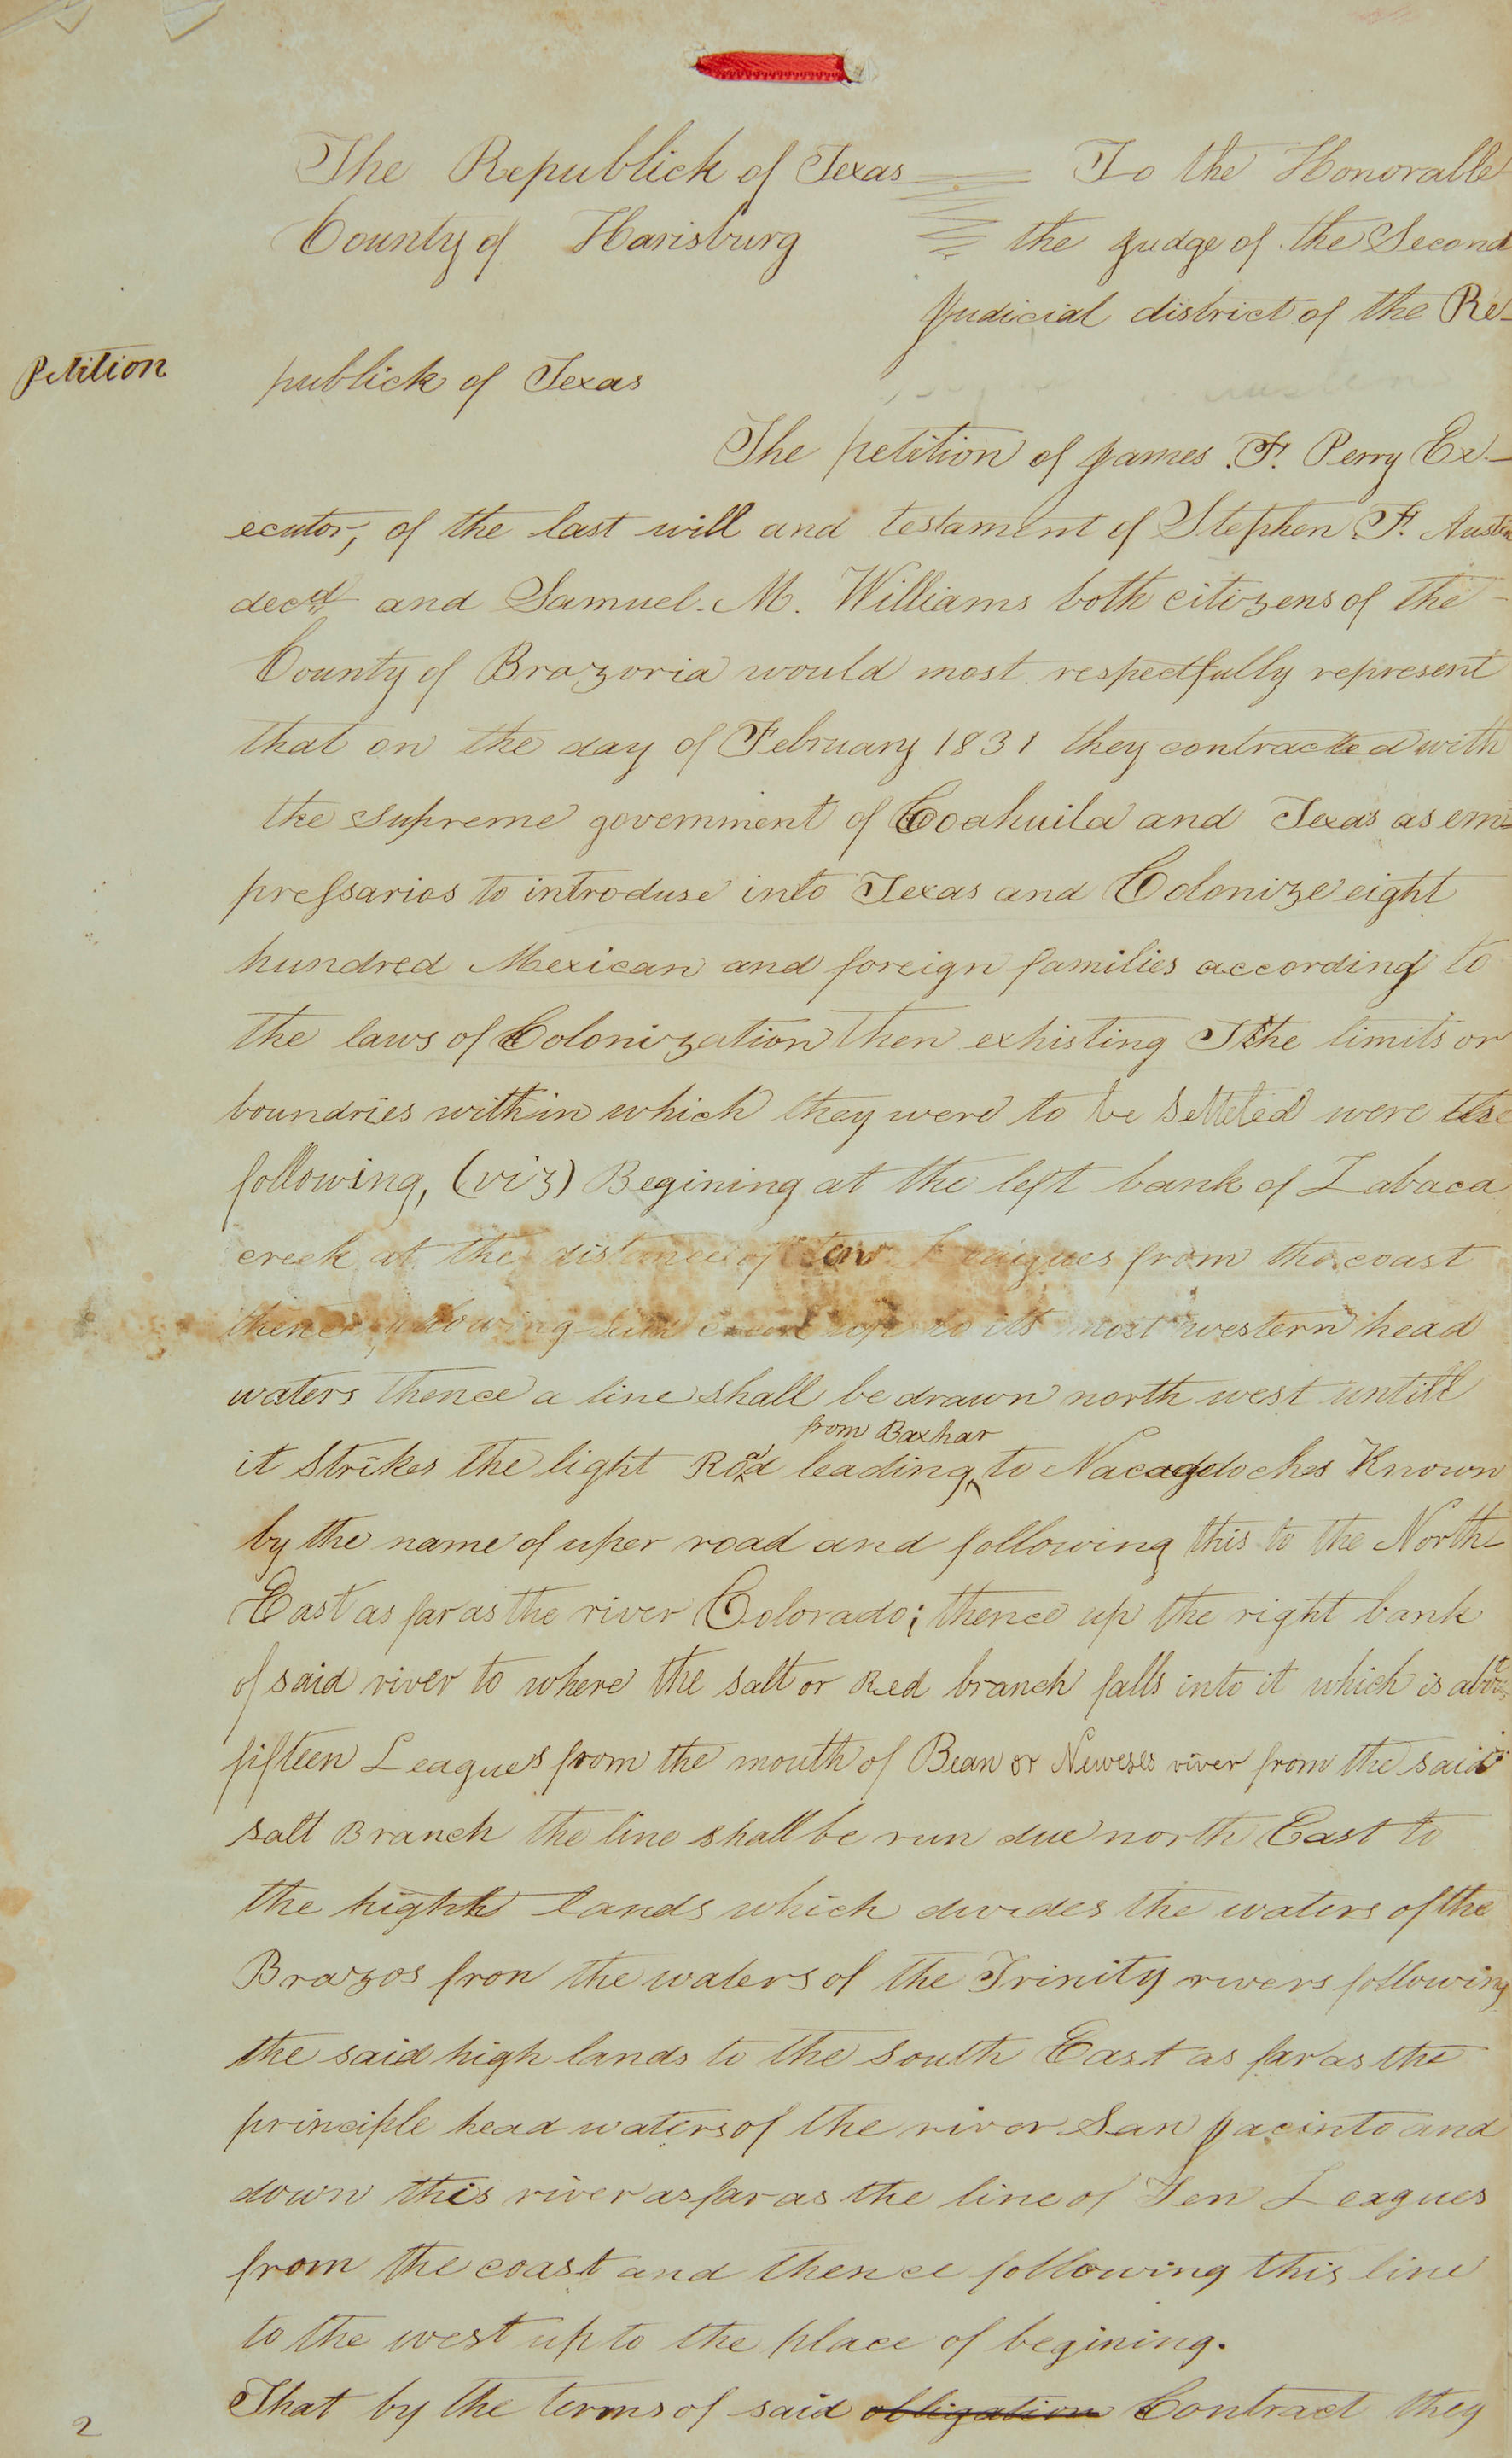 The Republick of Texas To the Honorable
County of Harisburg the judge of the Second
Judicial district of the Re-
Petition publick of Texas
The petition of James F. Perry Ex-
ecutor, of the last will and testament of Stephen F. Austin
decd and Samuel M. Williams both citizens of the
County of Brazoria would most respectfully represent
that on the day of February 1831 they contracted with
the supreme government of Coahuila and Texas as em=
pressarios to introduse into Texas and Colonize eight
hundred Mexican and foreign families according to
the laws of Colonization then exhisting The limits or
boundries within which they were to be settled were the
following, (viz) Begining at the left bank of Labaca
creek at the distance of ten Leaigues from the coast
thence following creek up to its most western head
waters thence a line shall be drawn north west untill
from Baxhar
it strikes the light Road leading to Nacagdoches Known
by the name of uper road and following this to the North
East as far as the river Colorado; thence up the right bank
of said river to where the salt or Red branch falls into it which is about
fifteen Leagues from the mouth of Bean or Neweses river from the said
salt Branch the line shall be run due north East to
the hight lands which devides the waters of the
Brazos fron the waters of the Trinity rivers following
the said high lands to the south East as far as the
principle head waters of the river San Jacinto and
down this river as far as the line of Ten Leagues
from the coast and thence following this line
to the west up to the place of begining.
That by the terms of said obligation Contract they
2